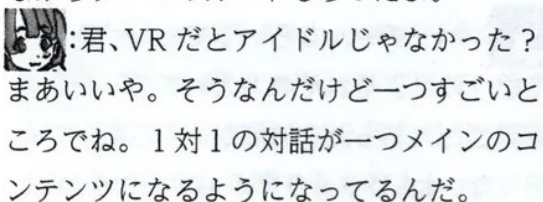 :君、VRだとアイドルじゃなかった?
まあいいや。そうなんだけど一つすごいと
ころでね。1対1の対話が一つメインのコ
ンテンツになるようになってるんだ。